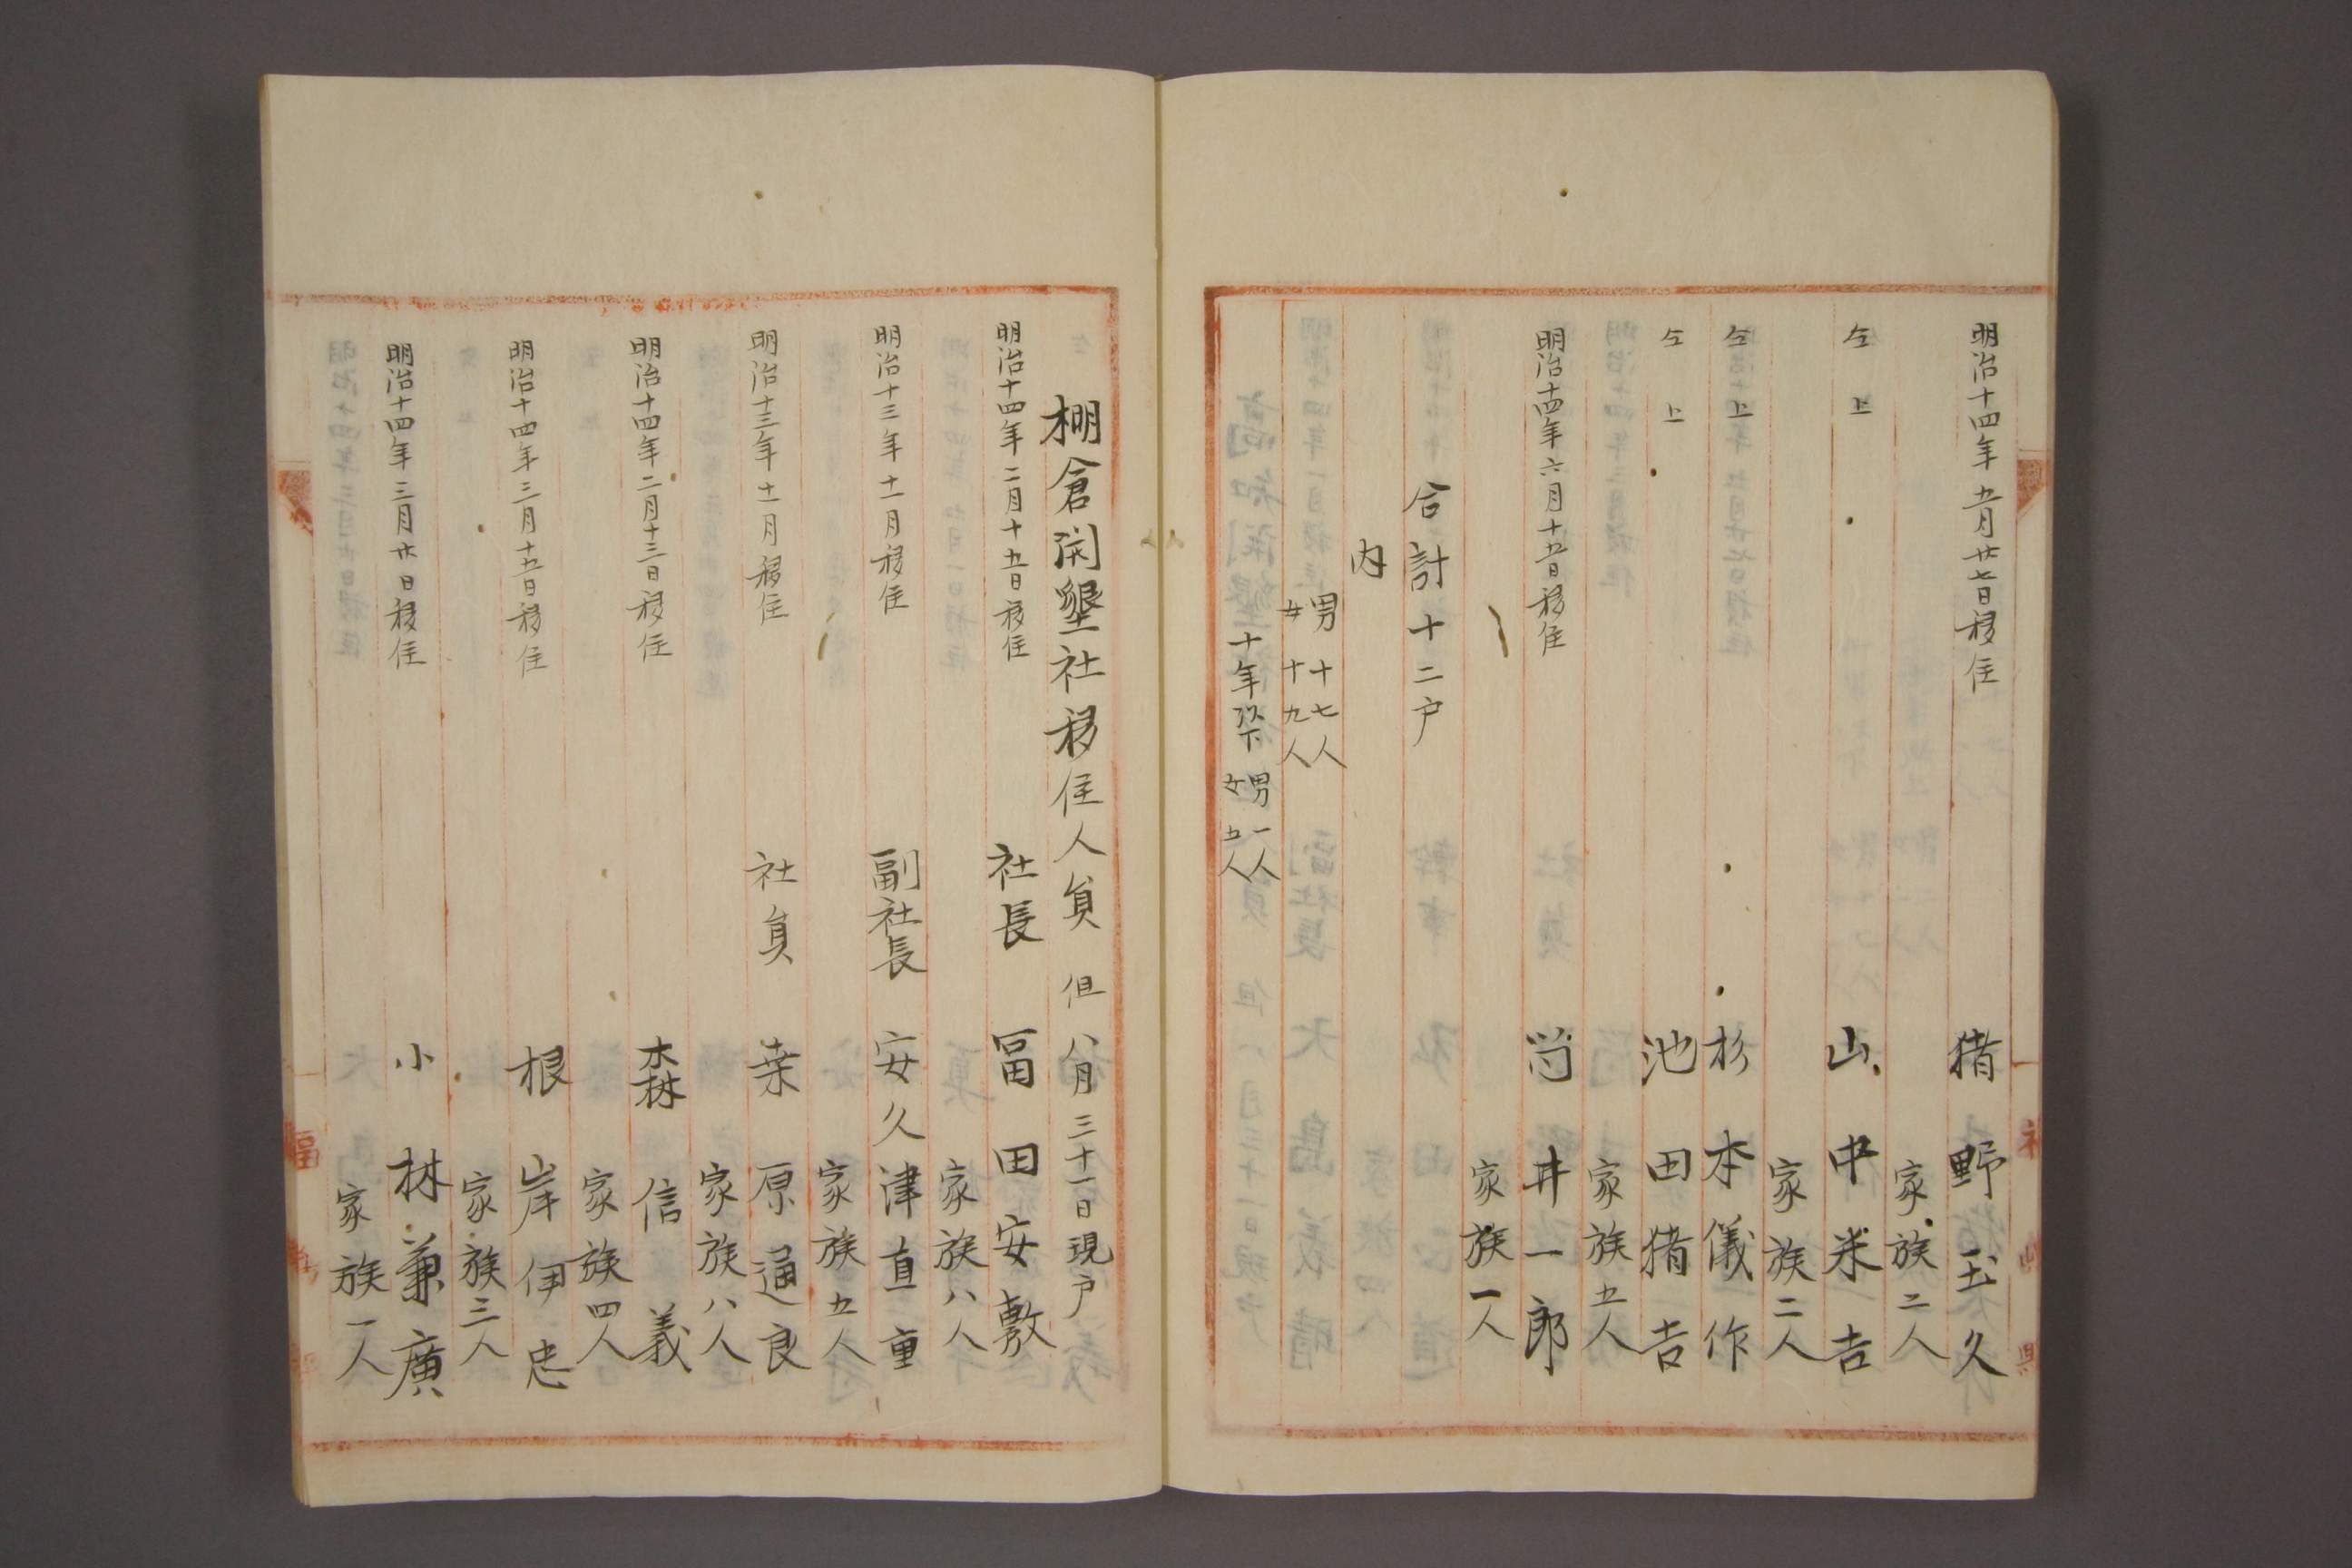 明治十四年五月廿七日移住　猪野玉久
家族二人
仝上　山中米吉
家族二人
仝上　杉本儀作
仝上　池田猪吉
家族五人
明治十四年六月十五日移住　筒井一郎
家族一人
合計十二戸
内
男十七人
女十九人
十年以下　男一人　女五人
棚倉開墾社移住人員　但八月三十一日現戸
明治十四年二月十五日移住　社長　冨田安敷
家族八人
明治十三年十一月移住　副社長　安久津直重
家族五人
明治十三年十一月移住　社員　桒原通良
家族八人
明治十四年二月十三日移住　森信義
家族四人
明治十四年三月十五日移住　根岸伊忠
家族三人
明治十四年三月廿日移住　小林兼廣
家族一人